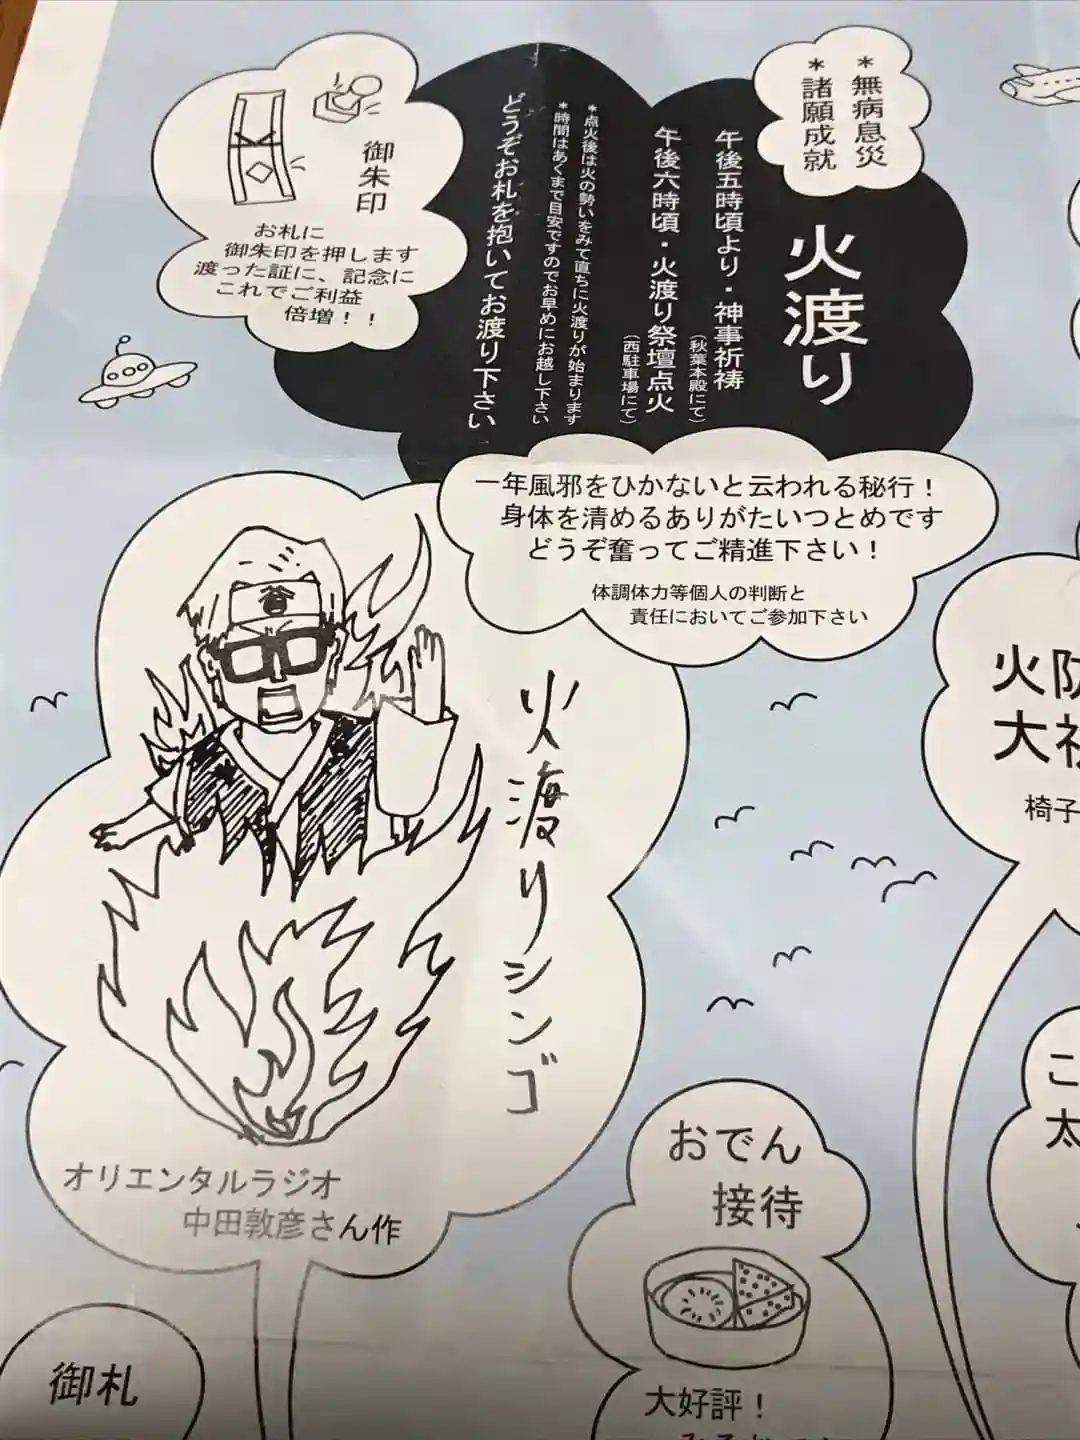 ＊無病息災
＊諸願成就
火渡り
午後五時頃より・神事祈祷
(秋葉本殿にて)
午後六時頃・火渡り祭壇点火
(西駐車場にて)
＊点火後は火の勢いをみて直ちに火渡りが始まります
＊時間はあくまで目安ですのでお早めにお越し下さい
どうぞお札を抱いてお渡り下さい
御朱印
お札に
御朱印を押します
渡った証に、記念に
これでご利益
倍増！！
一年風邪をひかないと云われる秘行！
身体を清めるありがたいつとめです
どうぞ奮ってご精進下さい！
体調体力等個人の判断と
責任においてご参加下さい
火渡りシンゴ
オリエンタルラジオ
中田敦彦さん作
火防
大祈
椅子
おでん
接待
大好評！
御札
こ
太